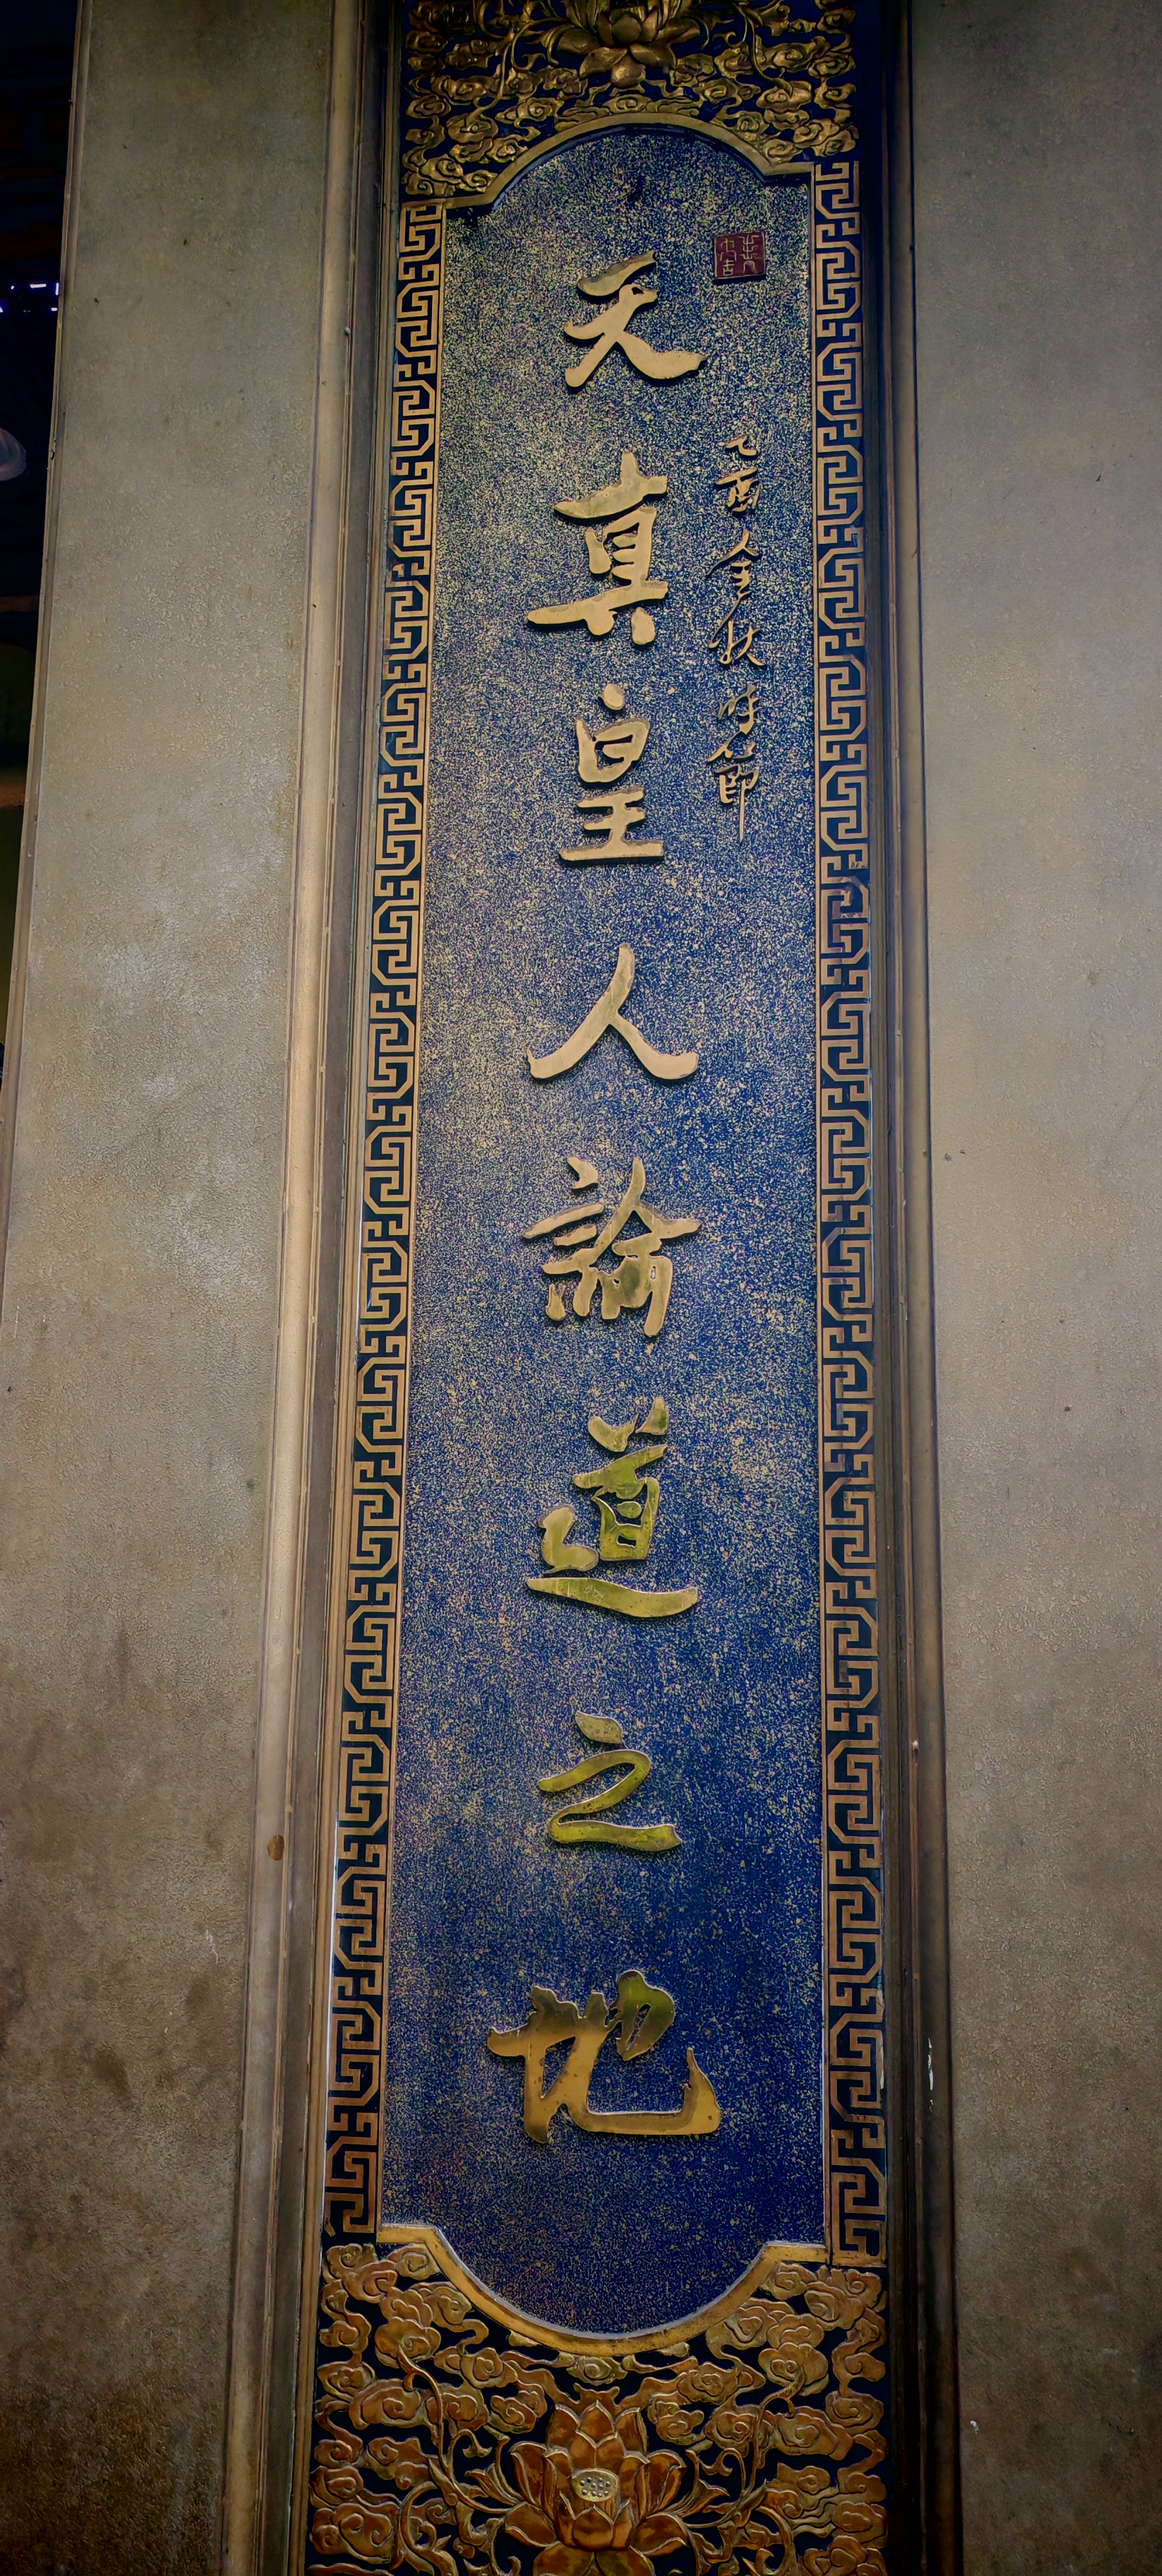 乙酉金秋時節
天真皇人論道之地